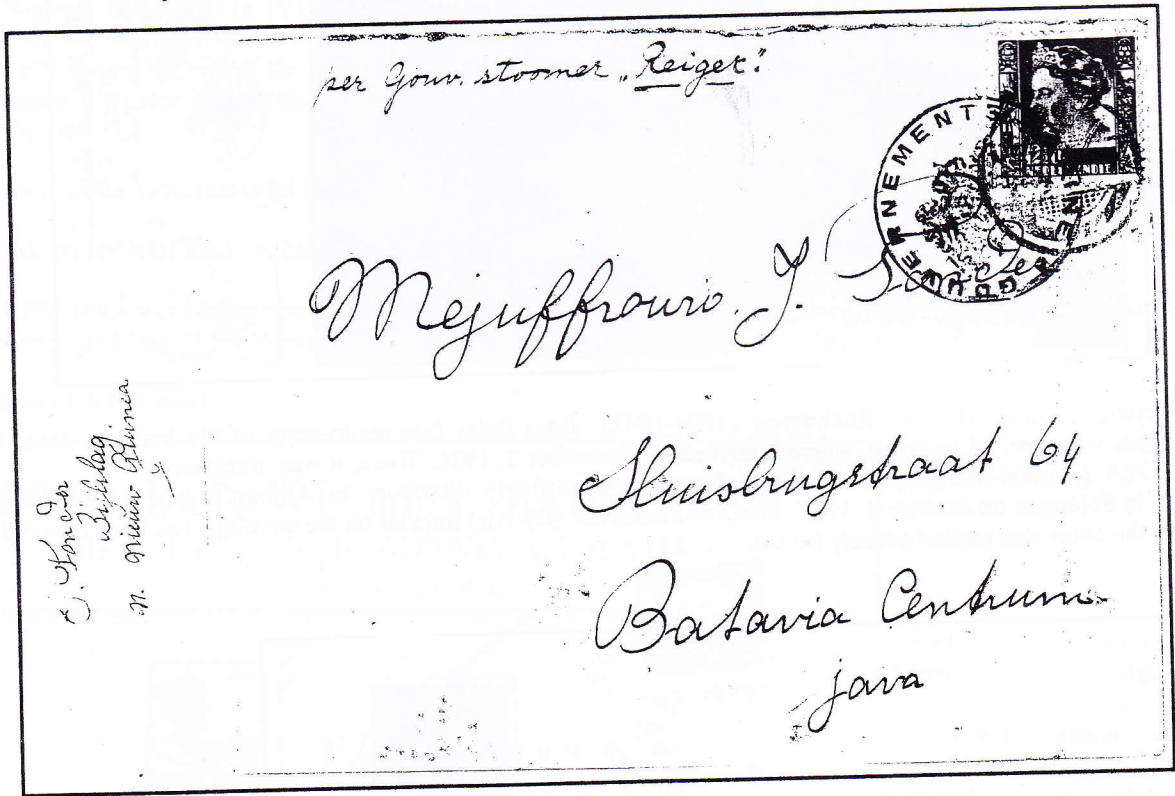 per Gouv. stoomer „Reiger".
GOUVERNEMENTS MARINE
Mejuffrouw. J.
Sluisbrugstraat 64
Batavia Centrum
java
Bijslag.
N. Nieuw Guinea